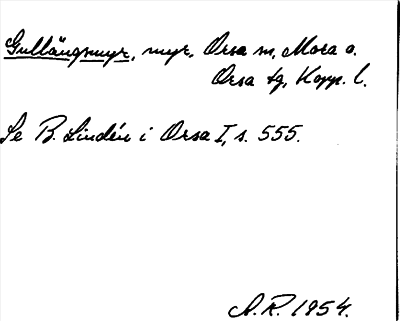 Gullängsmyr, myr, Orsa sn, Mora o.
Orsa tg, Kopp. l.
Se B. Lindén i Orsa I, s. 555.
A.R. 1954.